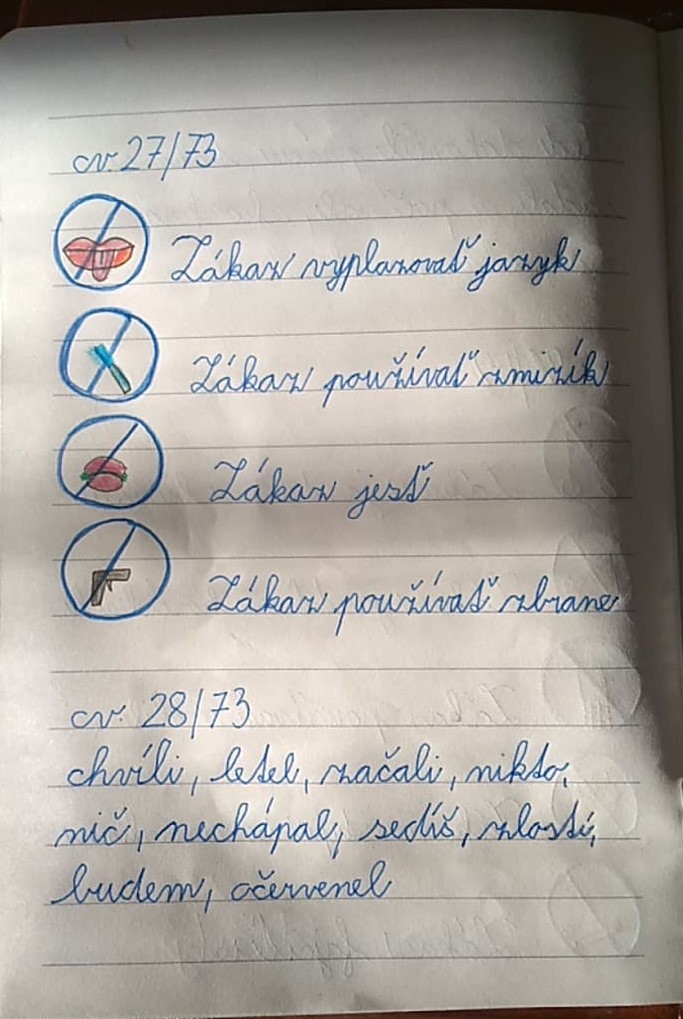 cv. 27/73
Zákaz vyplazovať jazyk
Zákaz používať zmizík
Zákaz jesť
Zákaz používať zbrane
cv. 28/73
chvíli, letel, začali, nikto,
nič, nechápal, sedíš, zlostí,
budem, očervenel